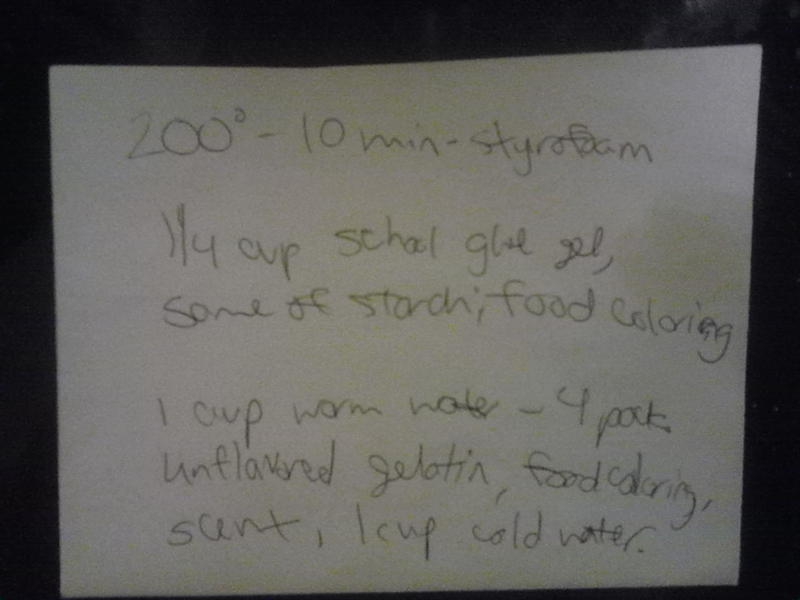 200° - 10 min - styrofoam
1/4 cup school glue gel,
same of starch, food coloring
1 cup warm water - 4 packs
unflavored gelatin, food coloring,
scent, 1 cup cold water.